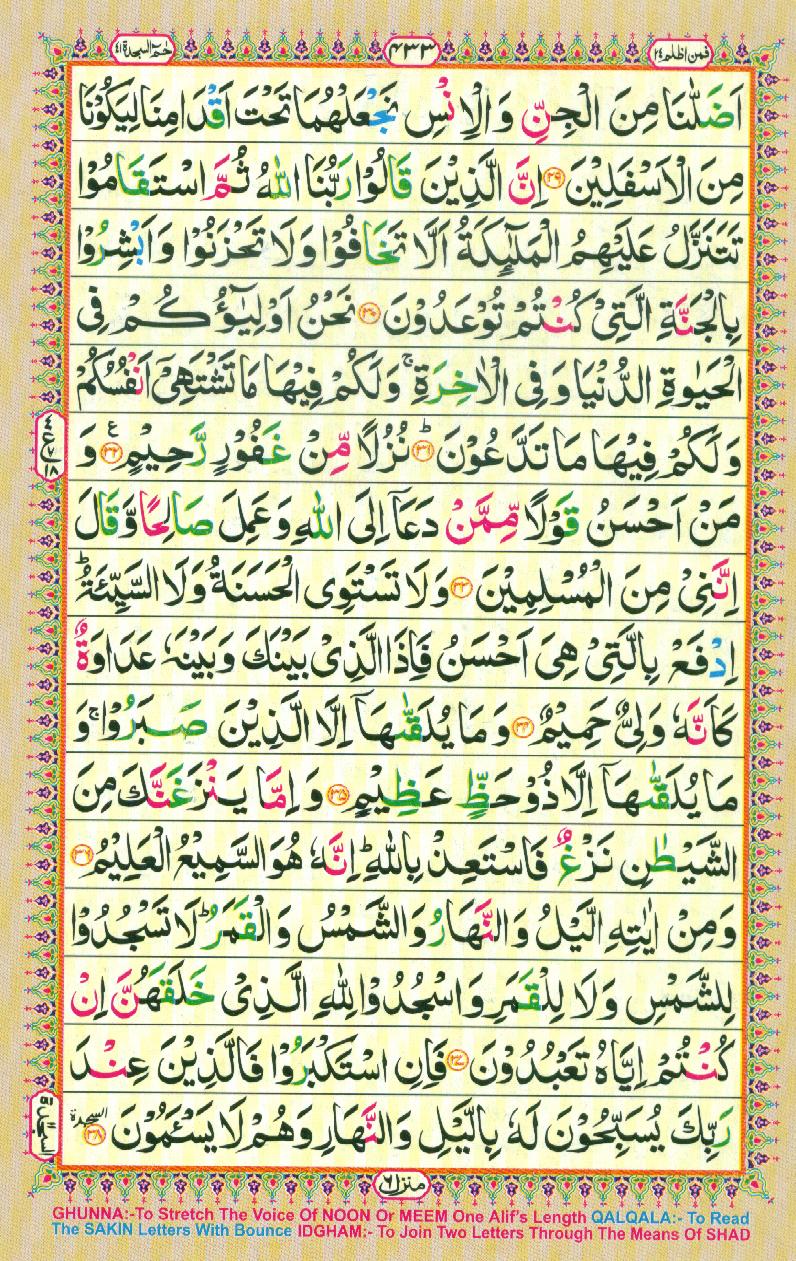 فمن اظلم ٢٤
٤٣٣
حٰمٓ السجدة ٤١
اَضَلّٰنَا مِنَ الْجِنِّ وَالْاِنْسِ نَجْعَلْهُمَا تَحْتَ اَقْدَامِنَا لِيَكُوْنَا
مِنَ الْاَسْفَلِيْنَ ﴿۲۹﴾ اِنَّ الَّذِيْنَ قَالُوْا رَبُّنَا اللّٰهُ ثُمَّ اسْتَقَامُوْا
تَتَنَزَّلُ عَلَيْهِمُ الْمَلٰٓئِكَةُ اَلَّا تَخَافُوْا وَلَا تَحْزَنُوْا وَاَبْشِرُوْا
بِالْجَنَّةِ الَّتِيْ كُنْتُمْ تُوْعَدُوْنَ ﴿۳۰﴾ نَحْنُ اَوْلِيٰٓؤُكُمْ فِى
الْحَيٰوةِ الدُّنْيَا وَفِى الْاٰخِرَةِ ۚ وَلَكُمْ فِيْهَا مَا تَشْتَهِيْٓ اَنْفُسُكُمْ
وَلَكُمْ فِيْهَا مَا تَدَّعُوْنَ ﴿۳۱﴾ ؕ نُزُلًا مِّنْ غَفُوْرٍ رَّحِيْمٍ ﴿۳۲﴾ ع وَ
مَنْ اَحْسَنُ قَوْلًا مِّمَّنْ دَعَآ اِلَى اللّٰهِ وَعَمِلَ صَالِحًا وَّقَالَ
اِنَّنِيْ مِنَ الْمُسْلِمِيْنَ ﴿۳۳﴾ وَلَا تَسْتَوِى الْحَسَنَةُ وَلَا السَّيِّئَةُ ؕ
اِدْفَعْ بِالَّتِيْ هِيَ اَحْسَنُ فَاِذَا الَّذِيْ بَيْنَكَ وَبَيْنَهٗ عَدَاوَةٌ
كَاَنَّهٗ وَلِيٌّ حَمِيْمٌ ﴿۳۴﴾ وَمَا يُلَقّٰىهَآ اِلَّا الَّذِيْنَ صَبَرُوْا ۚ وَ
مَا يُلَقّٰىهَآ اِلَّا ذُوْ حَظٍّ عَظِيْمٍ ﴿۳۵﴾ وَاِمَّا يَنْزَغَنَّكَ مِنَ
الشَّيْطٰنِ نَزْغٌ فَاسْتَعِذْ بِاللّٰهِ ؕ اِنَّهٗ هُوَ السَّمِيْعُ الْعَلِيْمُ ﴿۳۶﴾
وَمِنْ اٰيٰتِهِ الَّيْلُ وَالنَّهَارُ وَالشَّمْسُ وَالْقَمَرُ ؕ لَا تَسْجُدُوْا
لِلشَّمْسِ وَلَا لِلْقَمَرِ وَاسْجُدُوْا لِلّٰهِ الَّذِيْ خَلَقَهُنَّ اِنْ
كُنْتُمْ اِيَّاهُ تَعْبُدُوْنَ ﴿۳۷﴾ فَاِنِ اسْتَكْبَرُوْا فَالَّذِيْنَ عِنْدَ
رَبِّكَ يُسَبِّحُوْنَ لَهٗ بِالَّيْلِ وَالنَّهَارِ وَهُمْ لَا يَسْـَٔمُوْنَ ﴿۳۸﴾ السجدة
السجدة
منزل ٦
GHUNNA:-To Stretch The Voice Of NOON Or MEEM One Alif's Length QALQALA:- To Read
The SAKIN Letters With Bounce IDGHAM:- To Join Two Letters Through The Means Of SHAD